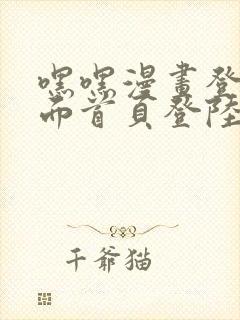 嘿嘿漫畫登
面首頁登陸
千爺猫